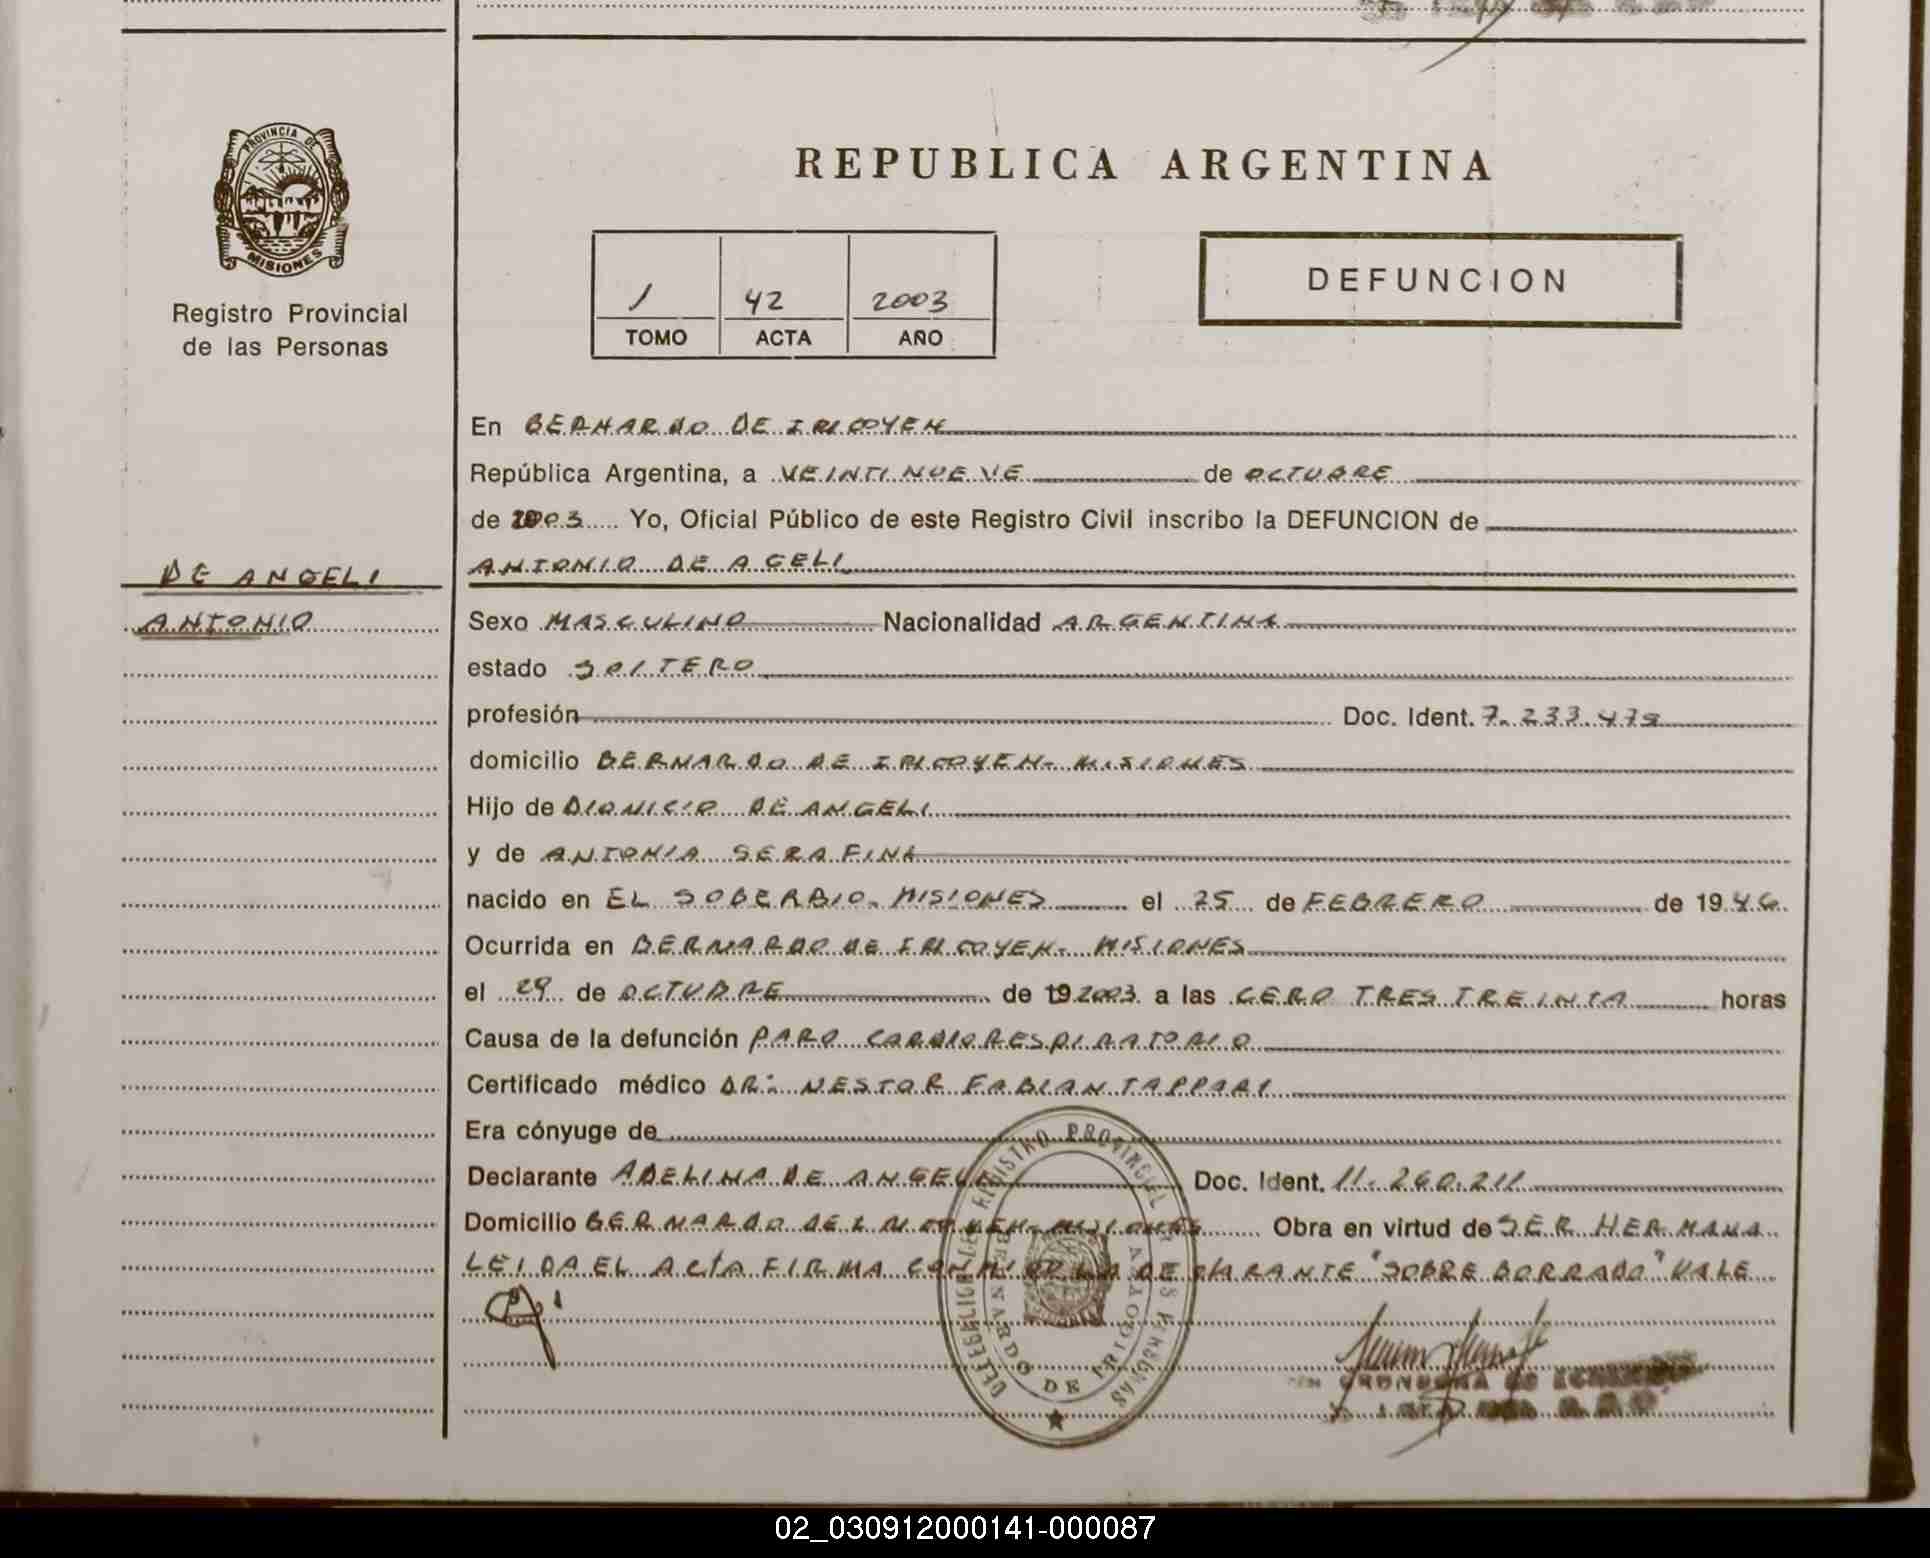 PROVINCIA DE
MISIONES
Registro Provincial
de las Personas
DE ANGELI
ANTONIO
REPUBLICA ARGENTINA
1 42 2003
TOMO ACTA AÑO
DEFUNCION
En BERNARDO DE IRIGOYEN
República Argentina, a VEINTINUEVE de OCTUBRE
de 2003 Yo, Oficial Público de este Registro Civil inscribo la DEFUNCION de
ANTONIO DE AGELI
Sexo MASCULINO Nacionalidad ARGENTINA
estado SOLTERO
profesión Doc. Ident. 7.233.479
domicilio BERNARDO DE IRIGOYEN - MISIONES
Hijo de DIONICIO DE ANGELI
y de ANTONIA SERAFINA
nacido en EL SOBERBIO - MISIONES el 25 de FEBRERO de 1946
Ocurrida en BERNARDO DE IRIGOYEN - MISIONES
el 29 de OCTUBRE de 19 2003 a las CERO TRES TREINTA horas
Causa de la defunción PARO CARDIORESPIRATORIO
Certificado médico DR: NESTOR FABIAN TAPPARI
Era cónyuge de
Declarante ADELINA DE ANGELI Doc. Ident. 11.260.211
Domicilio BERNARDO DE IRIGOYEN - MISIONES Obra en virtud de SER HERMANA
LEIDA EL ACTA FIRMA CONMIGO LA DECLARANTE "SOBRE BORRADO" VALE
DELEGACION DEL REGISTRO PROVINCIAL DE LAS PERSONAS
BERNARDO DE IRIGOYEN
02_030912000141-000087